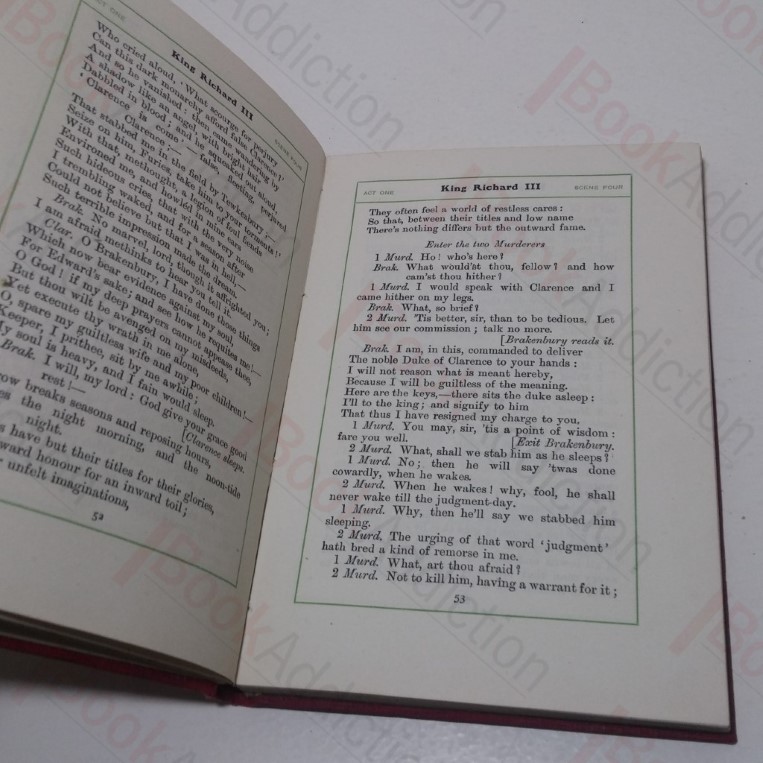 ACT ONE King Richard III SCENE FOUR
Who cried aloud, 'What scourge for perjury
Can this dark monarchy afford false Clarence?'
And so he vanished: then came wandering by
A shadow like an angel, with bright hair
Dabbled in blood; and he out aloud,
'Clarence is come;—false, fleeting, perjured
Clarence;—
That stabbed me in the field by Tewkesbury;—
Seize on him, Furies, take him to your torments!'
With that methought, a legion of foul fiends
Environed me, and howled in mine ears
Such hideous cries that with the very noise
I trembling waked, and, for a season after
Could not believe but that I was in hell,—
Such terrible impression made the dream.
Brak. No marvel, lord, though it affrighted you;
I am afraid methinks to hear you tell it.
Clar. O Brakenbury, I have done those things
Which now bear evidence against my soul,
For Edward's sake; and see how he requites me!—
O God! if my deep prayers cannot appease thee,
But thou wilt be avenged on my misdeeds,
Yet execute thy wrath in me alone,
O, spare my guiltless wife and my poor children!—
Keeper, I prithee, sit by me awhile;
My soul is heavy, and I fain would sleep.
Brak. I will, my lord: God give your grace good
rest!— [Clarence sleeps.
breaks seasons and reposing hours,
the night morning, and the noon-tide
night.
have but their titles for their glories,
honour for an inward toil;
unfelt imaginations,
52
ACT ONE King Richard III SCENE FOUR
They often feel a world of restless cares:
So that, between their titles and low name
There's nothing differs but the outward fame.
Enter the two Murderers
1 Murd. Ho! who's here?
Brak. What would'st thou, fellow? and how
cam'st thou hither?
1 Murd. I would speak with Clarence and I
came hither on my legs.
Brak. What, so brief?
2 Murd. 'Tis better, sir, than to be tedious. Let
him see our commission; talk no more.
[Brakenbury reads it.
Brak. I am, in this, commanded to deliver
The noble Duke of Clarence to your hands:
I will not reason what is meant hereby,
Because I will be guiltless of the meaning.
Here are the keys,—there sits the duke asleep:
I'll to the king; and signify to him
That thus I have resigned my charge to you.
1 Murd. You may, sir, 'tis a point of wisdom:
fare you well. [Exit Brakenbury.
2 Murd. What, shall we stab him as he sleeps?
1 Murd. No; then he will say 'twas done
cowardly, when he wakes.
2 Murd. When he wakes! why, fool, he shall
never wake till the judgment-day.
1 Murd. Why, then he'll say we stabbed him
sleeping.
2 Murd. The urging of that word 'judgment'
hath bred a kind of remorse in me.
1 Murd. What, art thou afraid?
2 Murd. Not to kill him, having a warrant for it;
53
BookAddiction